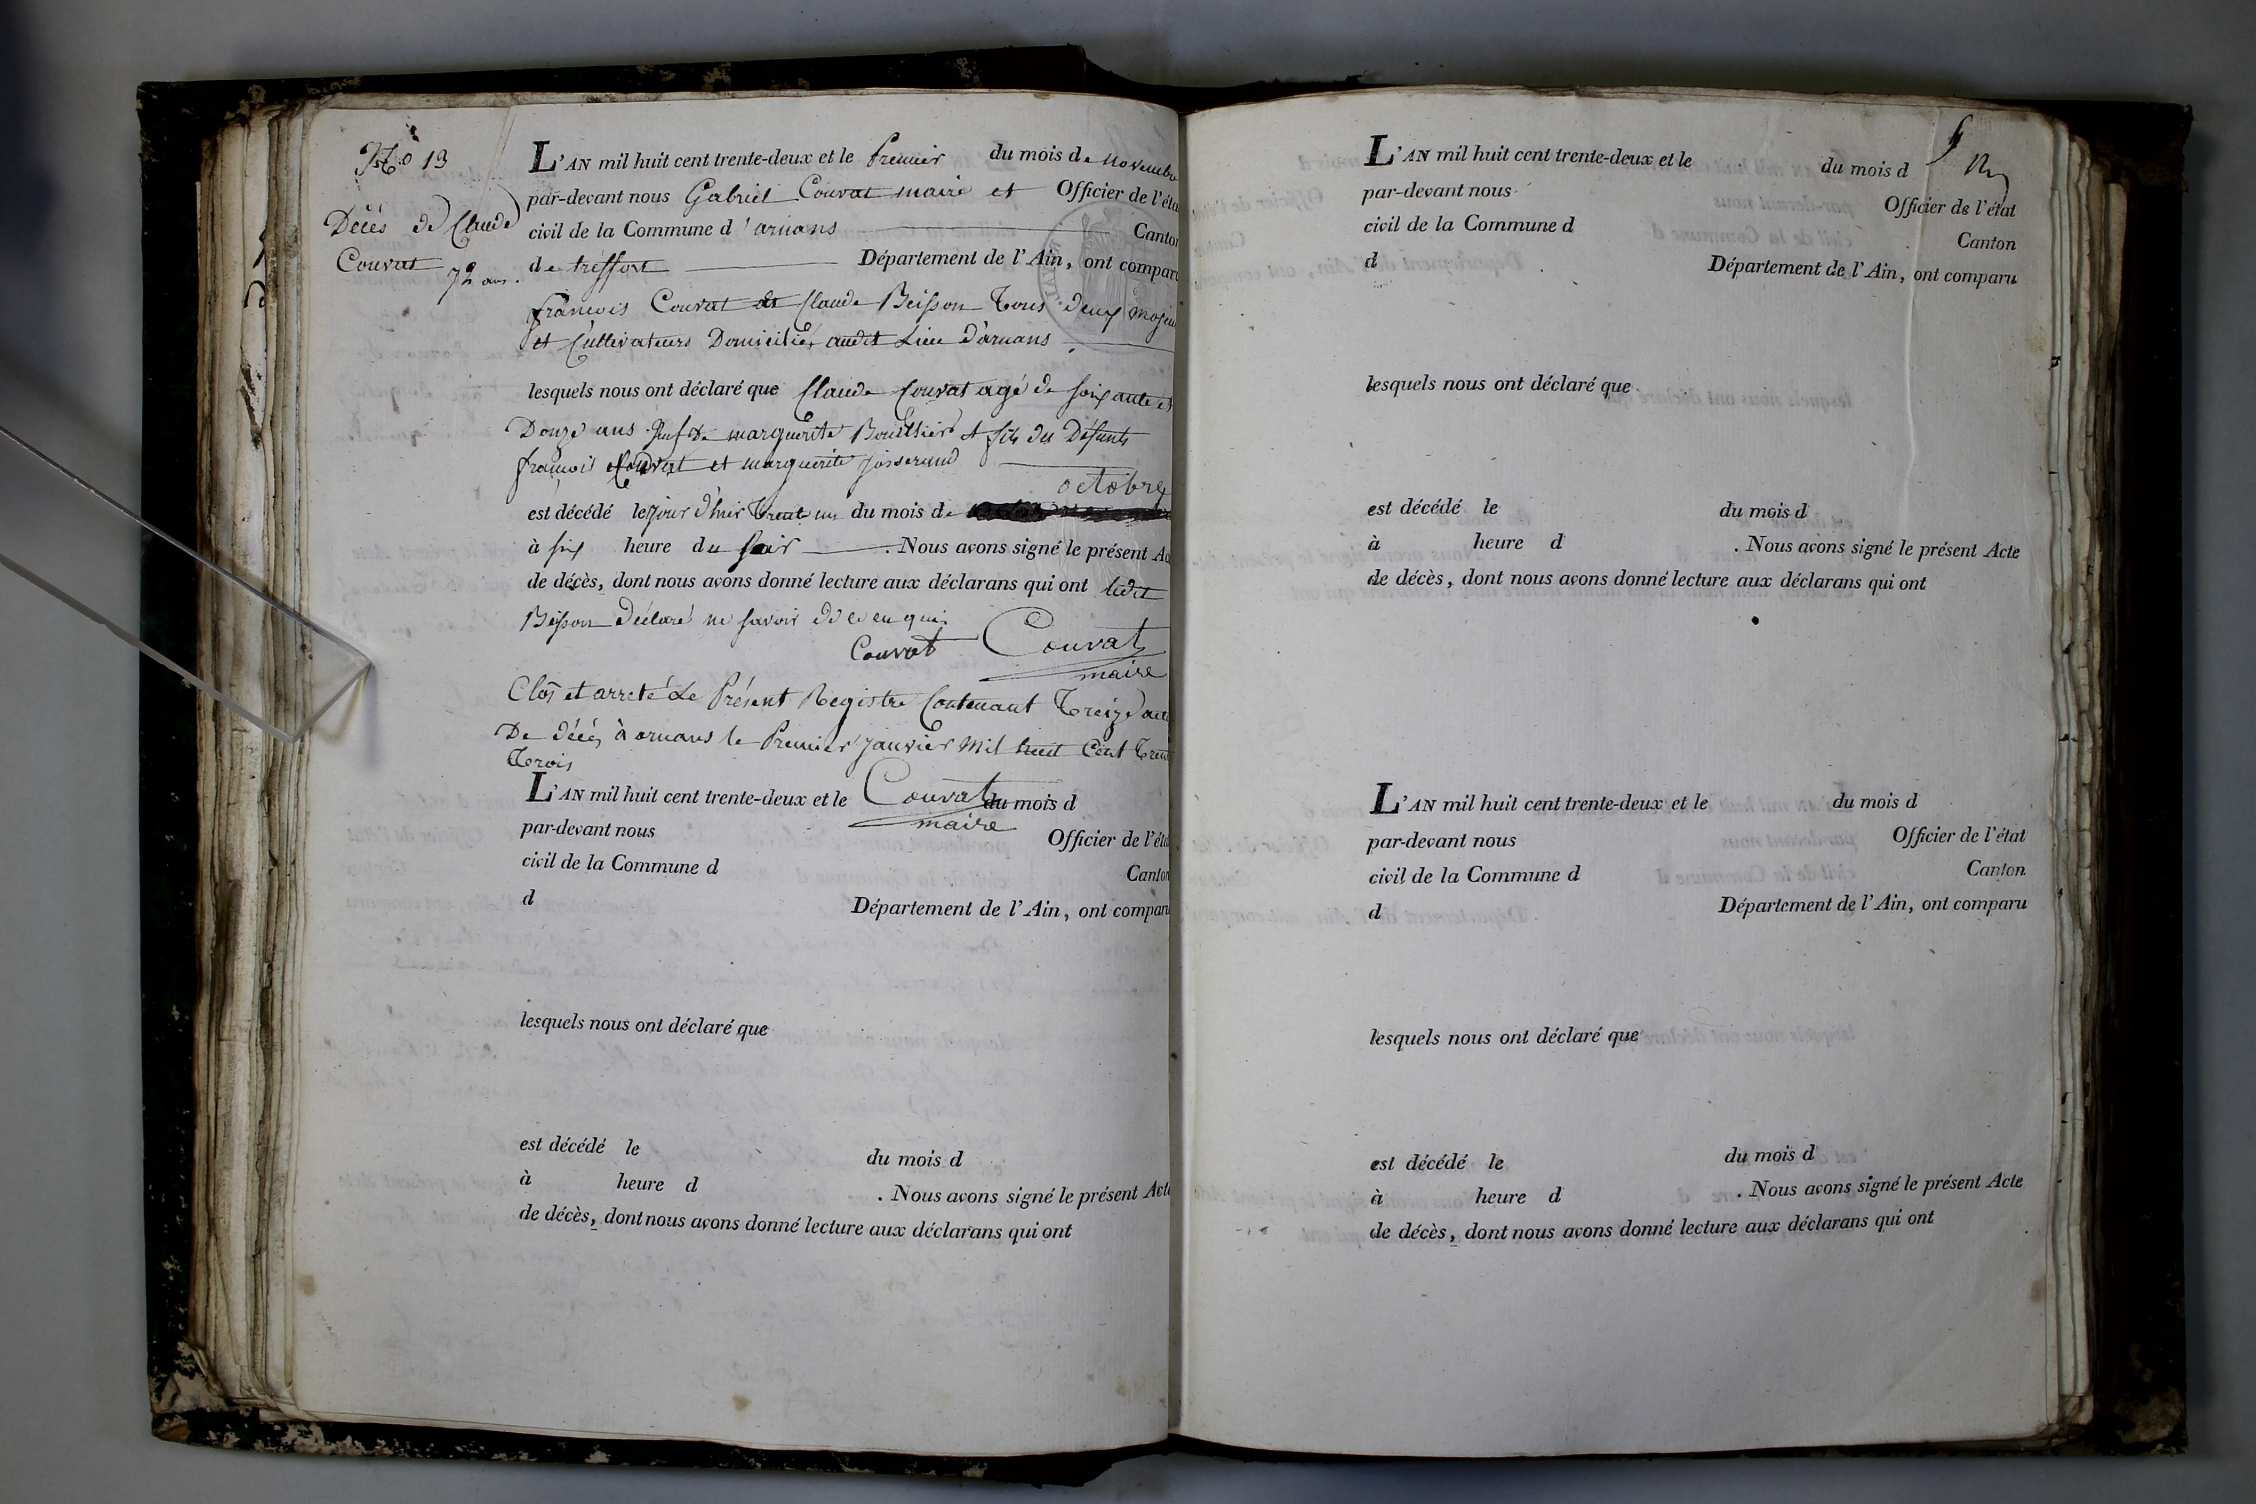 No 13
Décès de Claude
Couvat 72 ans.
L'AN mil huit cent trente-deux et le Premier du mois de novembre
par-devant nous Gabriel Couvat maire et Officier de l'éta
civil de la Commune d'arnans Canton
de treffort Département de l'Ain, ont comparu
françois Couvat et Claude Beisson Tous deux majeu
et Cultivateurs Domiciliés audit Lieu d'arnans
lesquels nous ont déclaré que Claude Couvat agé de soixante et
Douze ans veuf De marguerite Bouillier et fils des Défunts
françois Couvat et marguerite josserand
octobre
est décédé le jour d'hier Trente un du mois de
à six heure du soir . Nous avons signé le présent Ac
de décès, dont nous avons donné lecture aux déclarans qui ont ledit
Beisson Déclaré ne savoir de ce enquis
Couvat Couvat
maire
Clos et arreté Le Présent Registre Contenant Treize acte
De décés à arnans le Premier janvier Mil huit Cent Trent
Trois
L'AN mil huit cent trente-deux et le Couvat du mois d
maire
par-devant nous Officier de l'éta
civil de la Commune d Canton
d Département de l'Ain, ont comparu
lesquels nous ont déclaré que
est décédé le du mois d
à heure d . Nous avons signé le présent Acte
de décès, dont nous avons donné lecture aux déclarans qui ont
12
L'AN mil huit cent trente-deux et le du mois d
par-devant nous Officier de l'état
civil de la Commune d Canton
d Département de l'Ain, ont comparu
lesquels nous ont déclaré que
est décédé le du mois d
à heure d . Nous avons signé le présent Acte
de décès, dont nous avons donné lecture aux déclarans qui ont
L'AN mil huit cent trente-deux et le du mois d
par-devant nous Officier de l'état
civil de la Commune d Canton
d Département de l'Ain, ont comparu
lesquels nous ont déclaré que
est décédé le du mois d
à heure d . Nous avons signé le présent Acte
de décès, dont nous avons donné lecture aux déclarans qui ont